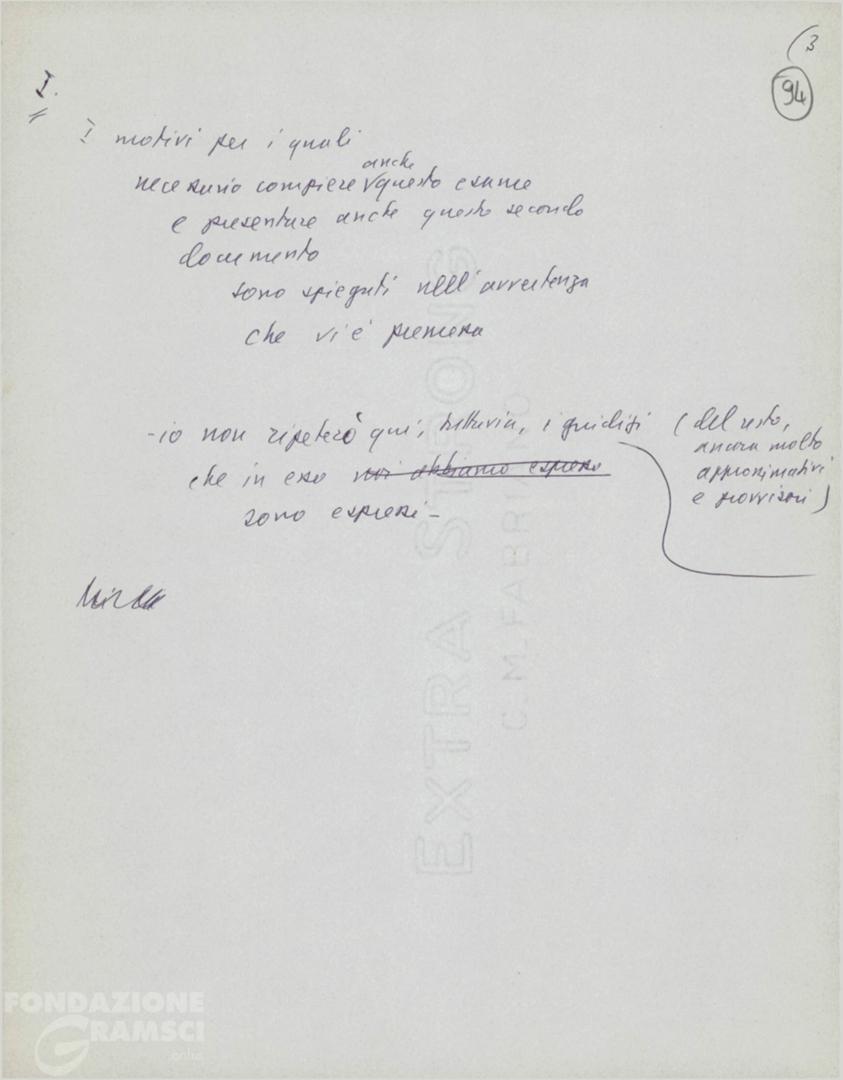 (3
94
I.
I motivi per i quali
anche
necessario compiere questo esame
e presentare anche questo secondo
documento
sono spiegati nell'avvertenza
che vi è premessa
- io non ripeterò qui, tuttavia, i giudizi (del resto,
ancora molto
approssimativi
e provvisori)
che in esso noi abbiamo espresso
sono espressi -
EXTRA STRONG
C.M. FABRIANO
FONDAZIONE
GRAMSCI
onlus